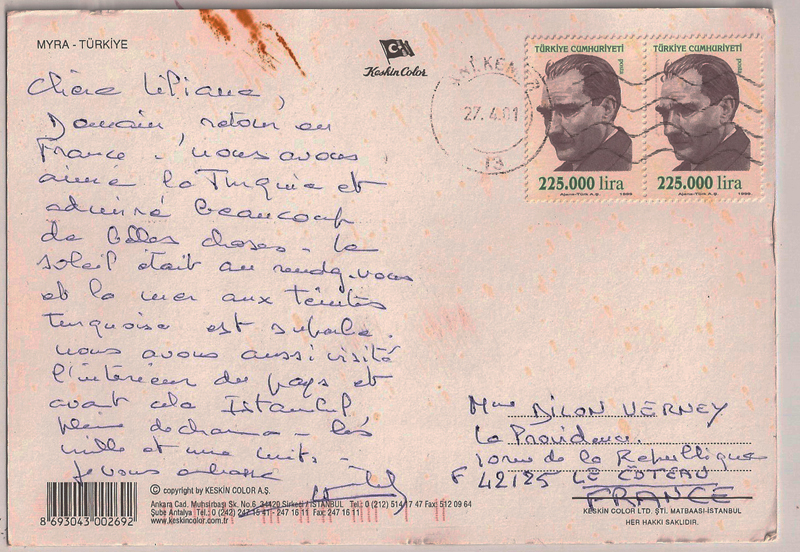 MYRA - TÜRKİYE
Keskin Color
27.4.01
13
TÜRKİYE CUMHURİYETİ
posta
225.000 lira
Ajans-Türk A.Ş.
1998
TÜRKİYE CUMHURİYETİ
posta
225.000 lira
Ajans-Türk A.Ş.
1998
Chère Liliane,
Demain retour en
France - nous avons
aimé la Turquie et
admiré beaucoup
de belles choses - Le
soleil était au rendez-vous
et la mer aux teintes
turquoise est superbe.
nous avons aussi visité
l'intérieur du pays et
avant cela Istanbul
pleine de charme - les
mille et une nuits -
Je vous embrasse
Mme DILON VERNEY
La Providence
10 rue de la République
F 42125 LE COTEAU
FRANCE
8 693043 002692
© copyright by KESKİN COLOR A.Ş.
Ankara Cad. Muhsirbaşı Sk. No.6 34420 Sirkeci / İSTANBUL Tel.: 0 (212) 514 17 47 Fax: 512 09 64
Şube Antalya Tel.: 0 (242) 247 15 41 - 247 16 11 Fax: 247 16 11
www.keskincolor.com.tr
KESKİN COLOR LTD. ŞTİ. MATBAASI-İSTANBUL
HER HAKKI SAKLIDIR.